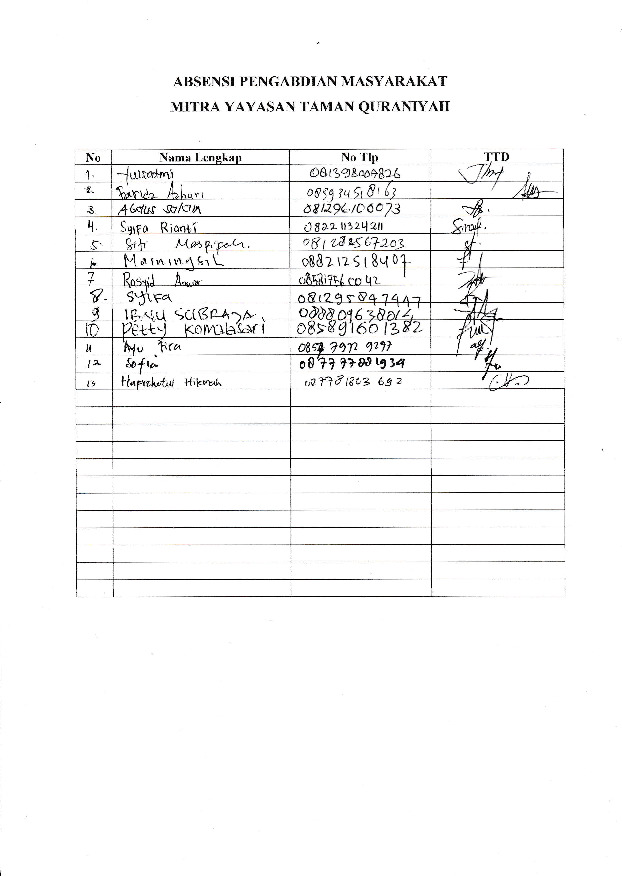 ABSENSI PENGABDIAN MASYARAKAT
MITRA YAYASAN TAMAN QURANIYAH
No Nama Lengkap No Tlp TTD
1. Yulisatmi 081398009826
2. Azhuri 085934518163
3 Agus Salim 081296100073
4. Syifa Rianti 082211324211
5. Siti 081282567203
6 Mainingsih 088212518407
7 Rosyid 0042
8. SYIFA 081295847447
9 IBNU SUBRATA 088809638014
10 Petty Komalasari 085891601382
11 Ayu Tira 0857 7972 9297
12 Sofia 087777881934
13 Hafizhatul Hikmah 087781803 692